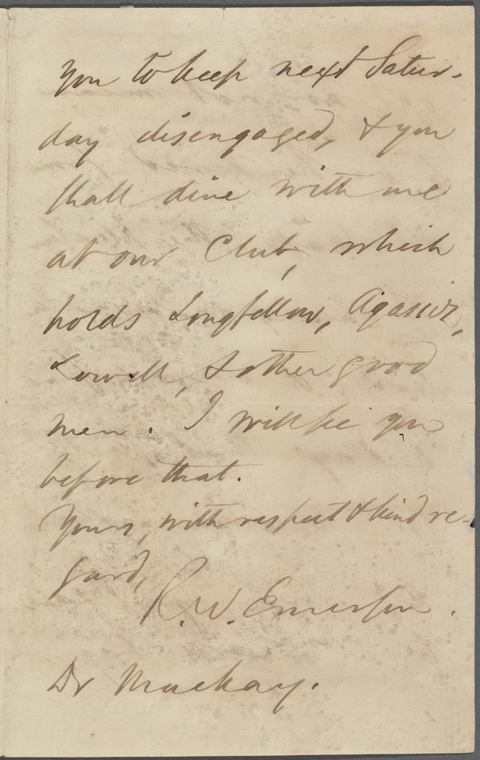 you to keep next Satur-
day disengaged, & you
shall dine with me
at our Club, which
holds Longfellow, Agassiz,
Lowell, & other good
men. I will see you
before that.
Yours, with respect & kind re-
gard,
R. W. Emerson.
Dr Mackay.